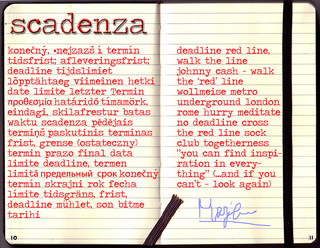 scadenza
konečný, najzazší termin
tidsfrist; afleveringsfrist;
deadline tijdslimiet
lõpptähtaeg viimeinen hetki
date limite letzter Termin
προθεσμία határidő tímamörk,
eindagi, skilafrestur batas
waktu scadenza pēdējais
termiņš paskutinis terminas
frist, grense (ostateczny)
termin prazo final data
limite deadline, termen
limită предельный срок konečný
termín skrajni rok fecha
límite tidsgräns, frist,
deadline mühlet, son bitme
tarihi
10
deadline red line,
walk the line
johnny cash - walk
the 'red' line
wollmeise metro
underground london
rome hurry meditate
no deadline cross
the red line sock
club togetherness
"you can find inspi-
ration in every-
thing" (...and if you
can't - look again)
11